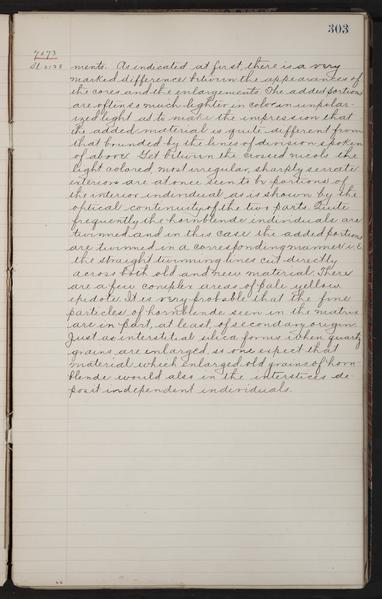 303
7073
Sl. 2128
ments. As indicated at first, there is a very
marked difference between the appearances of
the cores and the enlargements. The added portions
are often so much lighter in color in unpolar-
ized light as to make the impression that
the added material is quite different from
that bounded by the lines of division spoken
of above. Yet between the crossed nicols the
light colored, most irregular, sharply serrate
exteriors are at once seen to be portions of
the interior individual as is shown by the
optical continuity of the two parts. Quite
frequently the hornblende individuals are
twinned and in this case the added portions
are twinned in a corresponding manner i.e.
the straight twinning lines cut directly
across both old and new material. There
are a few complex areas of pale yellow
epidote. It is very probable that the fine
particles of hornblende seen in the matrix
are in part, at least, of secondary origin.
Just as interstitial silica forms when quartz
grains are enlarged so one expect that
material which enlarged old grains of horn-
blende would also in the interstices de-
posit independent individuals.